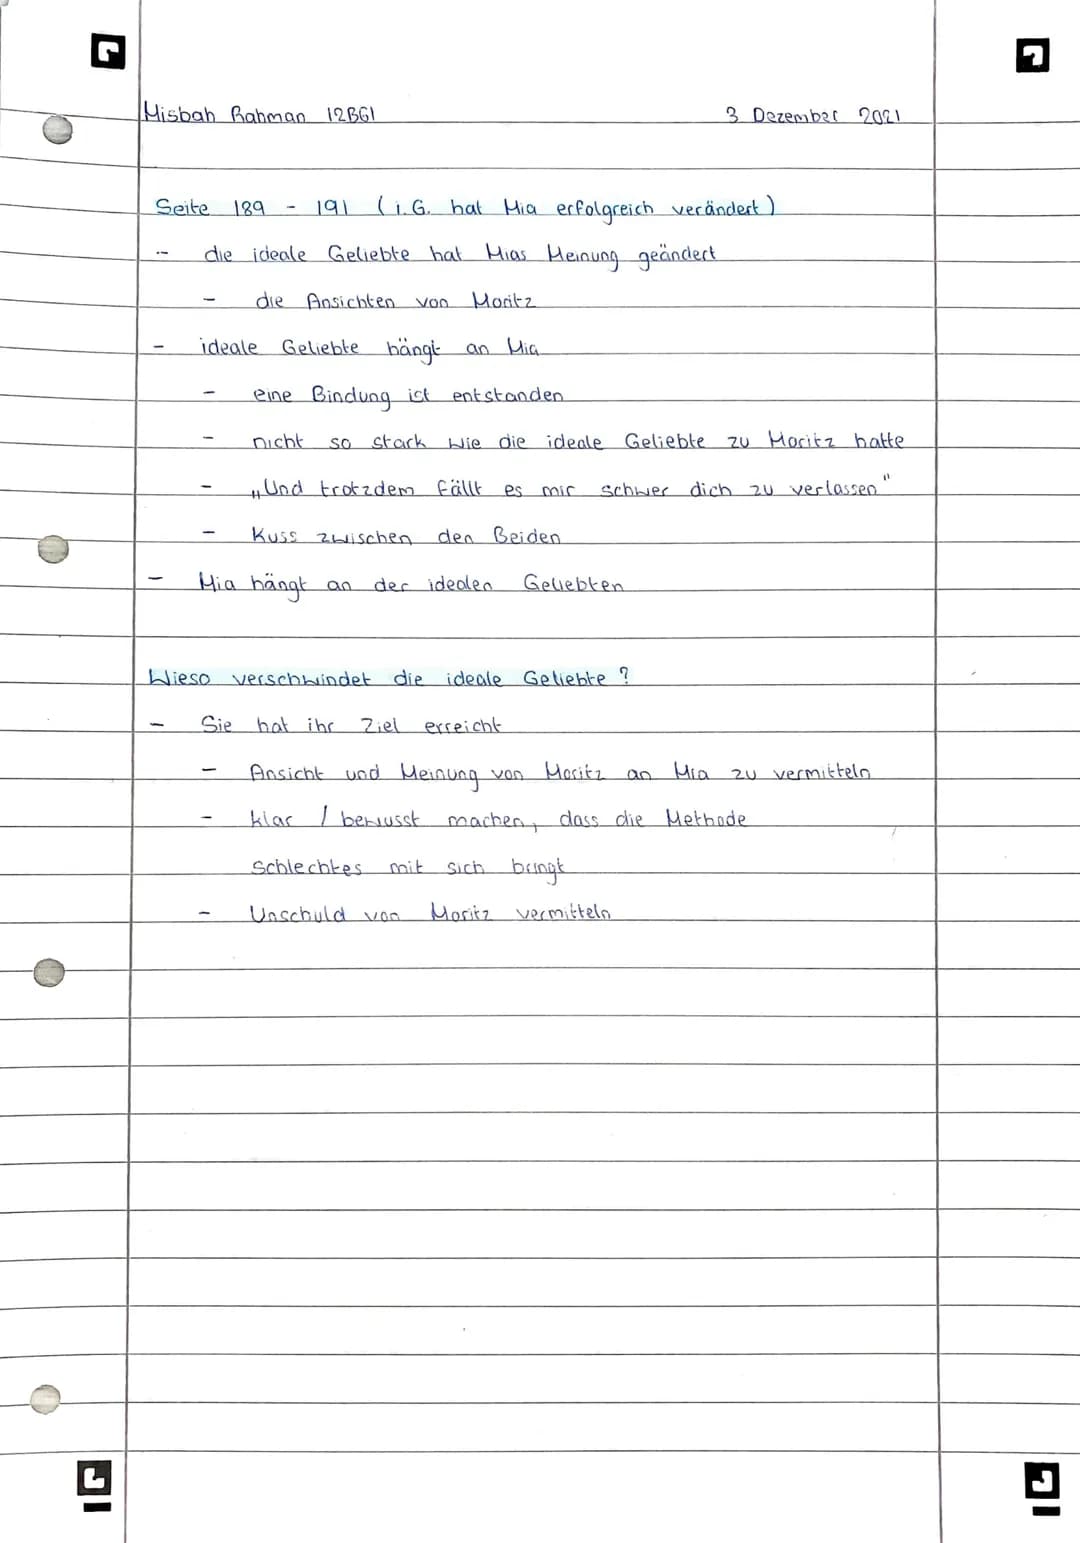 Misbah Rahman 12BG1 3 Dezember 2021
Seite 189 - 191 (i.G. hat Mia erfolgreich verändert)
- die ideale Geliebte hat Mias Meinung geändert
- die Ansichten von Moritz
- ideale Geliebte hängt an Mia
- eine Bindung ist entstanden
- nicht so stark wie die ideale Geliebte zu Moritz hatte
- „Und trotzdem fällt es mir schwer dich zu verlassen"
- Kuss zwischen den Beiden
- Mia hängt an der idealen Geliebten
Wieso verschwindet die ideale Geliebte?
- Sie hat ihr Ziel erreicht
- Ansicht und Meinung von Moritz an Mia zu vermitteln
- klar / bewusst machen, dass die Methode
Schlechtes mit sich bringt
- Unschuld von Moritz vermitteln